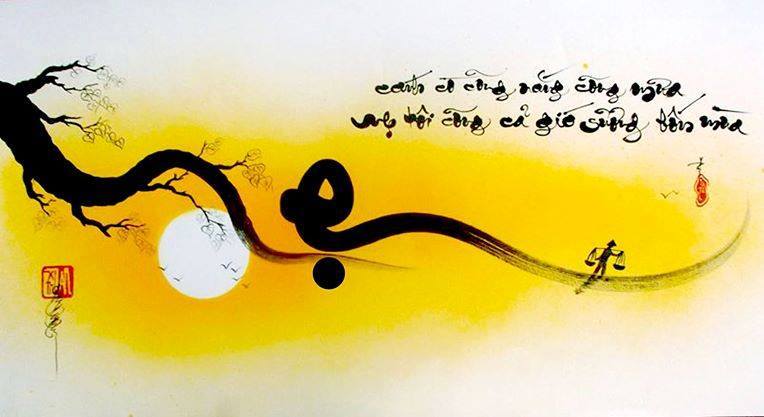 cánh cò cõng nắng cõng mưa
mẹ tôi cõng cả gió sương bốn mùa
mẹ